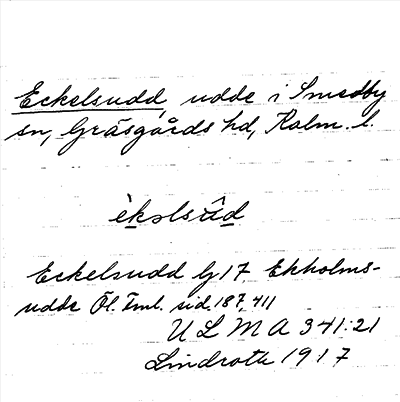 Eckelsudd, udde i Smedby
sn, Gräsgårds hd, Kalm. l.
èkəlsûd
Eckelsudd G 17, Ekholms-
udde Öl. Fml. sid. 187, 411
ULMA 341:21
Lindroth 1917